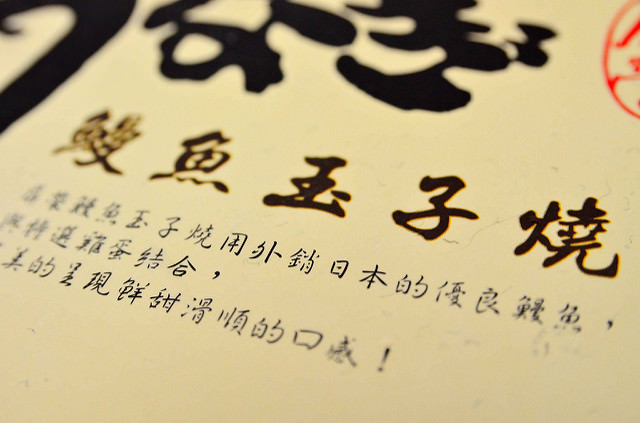 うなぎ
鰻魚玉子燒
鰻魚玉子燒用外銷日本的優良鰻魚，
與特選雞蛋結合，
美的呈現鮮甜滑順的口感！